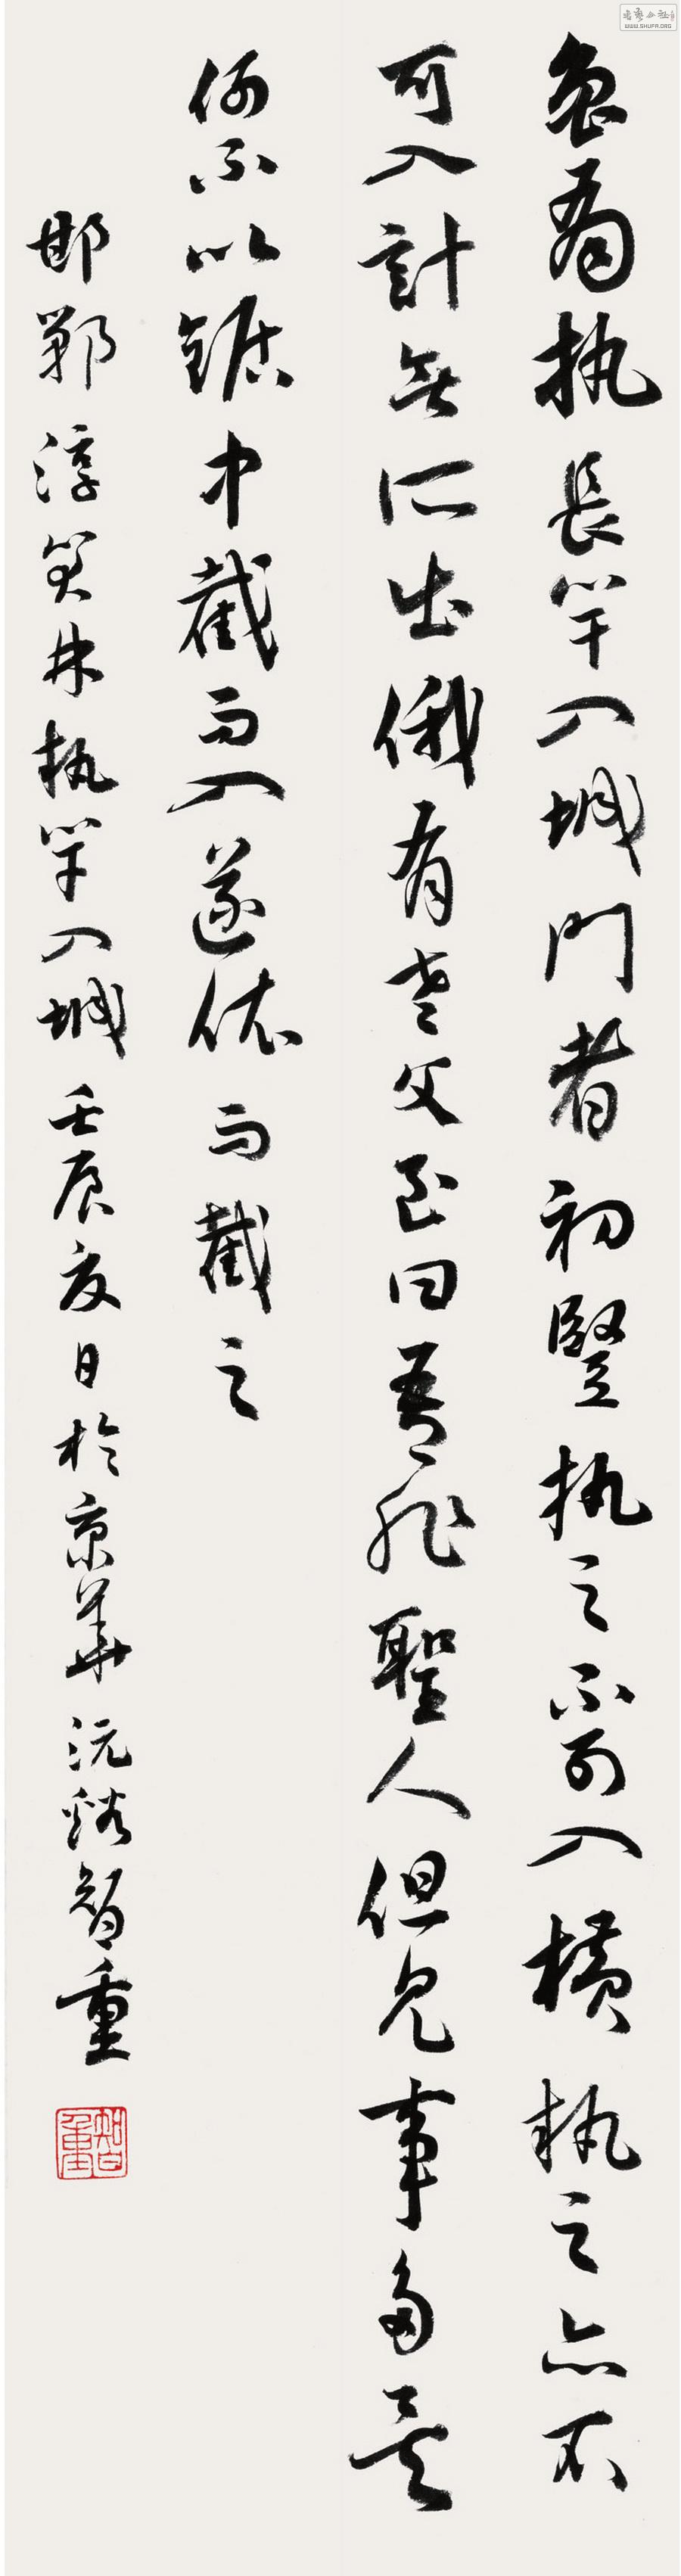 魯有執長竿入城門者初豎執之不可入橫執之亦不
可入計無所出俄有老父至曰吾非聖人但見事多矣
何不以鋸中截而入遂依而截之
邯鄲淳笑林執竿入城壬辰夏日於京華沅溪智重
智重
WWW.SHUFA.ORG